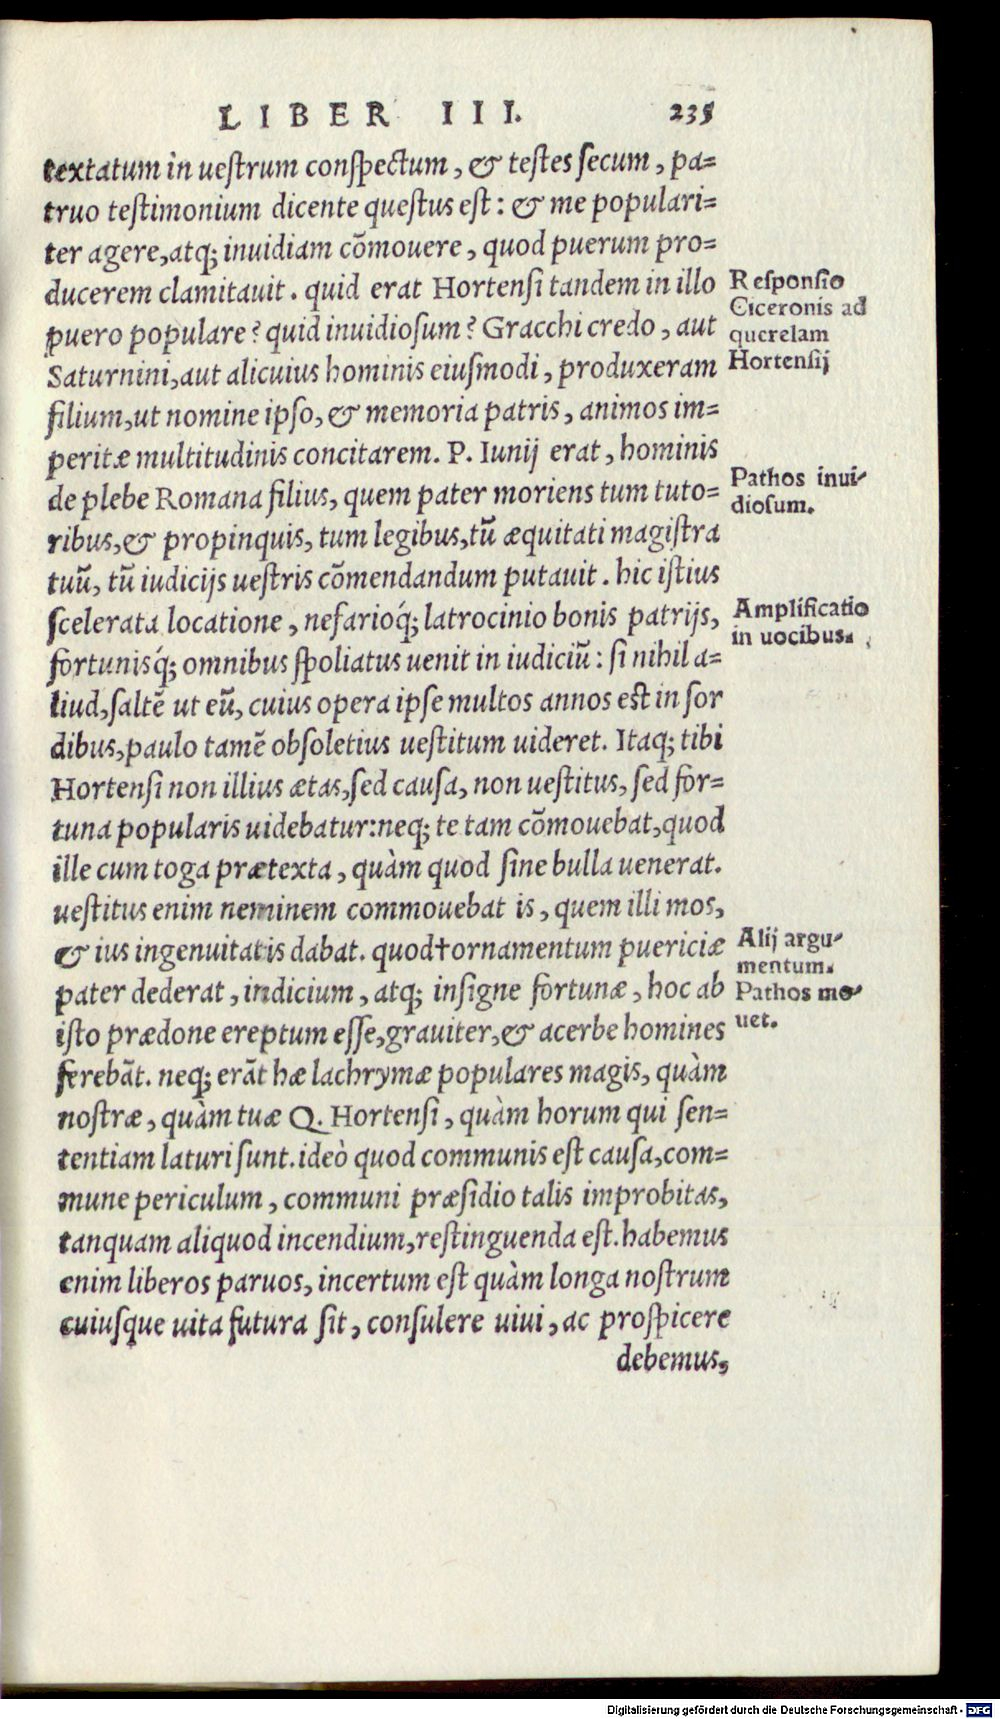 LIBER III. 235
textatum in uestrum conspectum, & testes secum, pa=
truo testimonium dicente questus est: & me populari=
ter agere, atq; inuidiam cõmouere, quod puerum pro=
ducerem clamitauit. quid erat Hortensi tandem in illo
puero populare? quid inuidiosum? Gracchi credo, aut
Saturnini, aut alicuius hominis eiusmodi, produxeram
filium, ut nomine ipso, & memoria patris, animos im=
peritæ multitudinis concitarem. P. Iunij erat, hominis
de plebe Romana filius, quem pater moriens tum tuto=
ribus, & propinquis, tum legibus, tũ æquitati magistra
tuũ, tũ iudicijs uestris cõmendandum putauit. hic istius
scelerata locatione, nefarioq́; latrocinio bonis patrijs,
fortunisq́; omnibus spoliatus uenit in iudiciũ: si nihil a=
liud, saltẽ ut eũ, cuius opera ipse multos annos est in sor
dibus, paulo tamẽ obsoletius uestitum uideret. Itaq; tibi
Hortensi non illius ætas, sed causa, non uestitus, sed for=
tuna popularis uidebatur: neq; te tam cõmouebat, quod
ille cum toga prætexta, quàm quod sine bulla uenerat.
uestitus enim neminem commouebat is, quem illi mos,
& ius ingenuitatis dabat. quod†ornamentum puericiæ
pater dederat, indicium, atq; insigne fortunæ, hoc ab
isto prædone ereptum esse, grauiter, & acerbe homines
ferebãt. neq; erãt hæ lachrymæ populares magis, quàm
nostræ, quàm tuæ Q. Hortensi, quàm horum qui sen=
tentiam laturi sunt. ideò quod communis est causa, com=
mune periculum, communi præsidio talis improbitas,
tanquam aliquod incendium, restinguenda est. habemus
enim liberos paruos, incertum est quàm longa nostrum
cuiusque uita futura sit, consulere uiui, ac prospicere
debemus,
Responsio
Ciceronis ad
querelam
Hortensij
Pathos inui-
diosum.
Amplificatio
in uocibus.
Alij argu-
mentum.
Pathos mo-
uet.
Digitalisierung gefördert durch die Deutsche Forschungsgemeinschaft - DFG